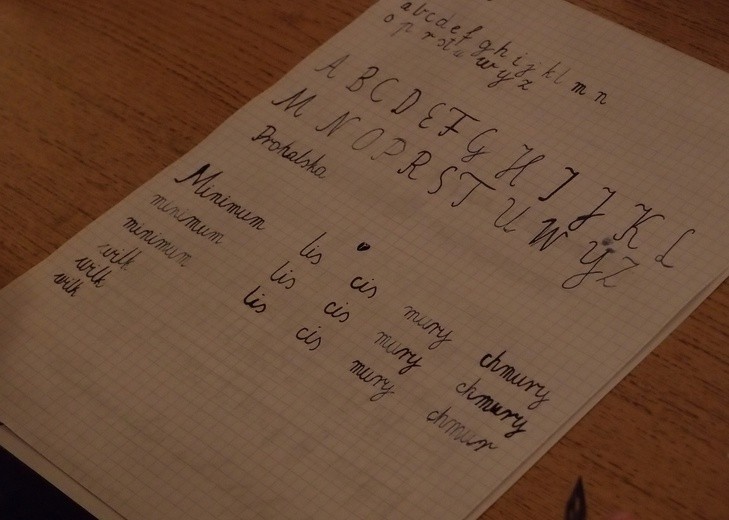 a b c d e f g h i j k l m n
o p r s t u w y z
A B C D E F G H I J K L
M N O P R S T U W Y Z
Prohalska
Minimum lis cis mury chmury
minimum lis cis mury chmury
minimum lis cis mury chmur
wilk
wilk
wilk